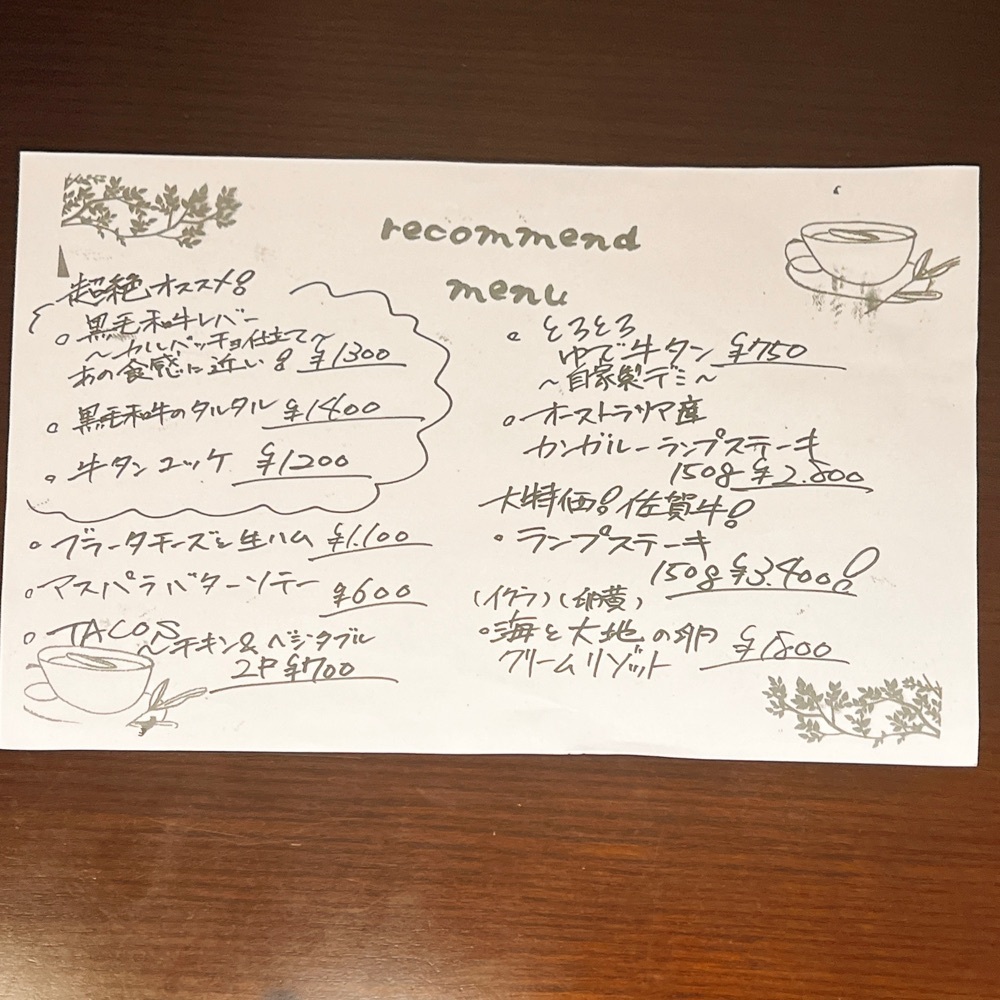 recommend
menu
超絶オススメ!
○ 黒毛和牛レバー
〜カルパッチョ仕立て〜
あの食感に近い! ¥1300
○ 黒毛和牛のタルタル ¥1400
○ 牛タンユッケ ¥1200
○ ブラータチーズと生ハム ¥1,100
アスパラバターソテー ¥600
○ TACOS
〜チキン&ベジタブル
2P ¥700
○ とろとろ
ゆで牛タン ¥750
〜自家製デミ〜
○ オーストラリア産
カンガルーランプステーキ
150g ¥2.800
大特価!佐賀牛!
○ ランプステーキ
150g ¥3.400!
(イクラ)(卵黄)
○ 海と大地の卵 ¥1800
クリームリゾット